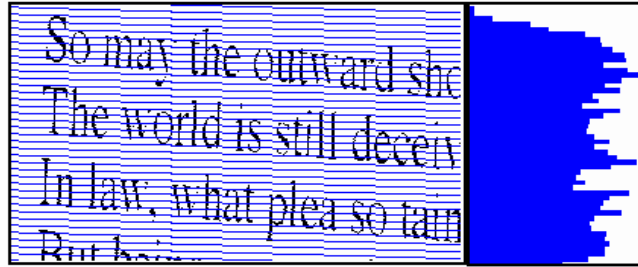 So may the outward sho
The world is still deceiv
In law, what plea so tain
But bein